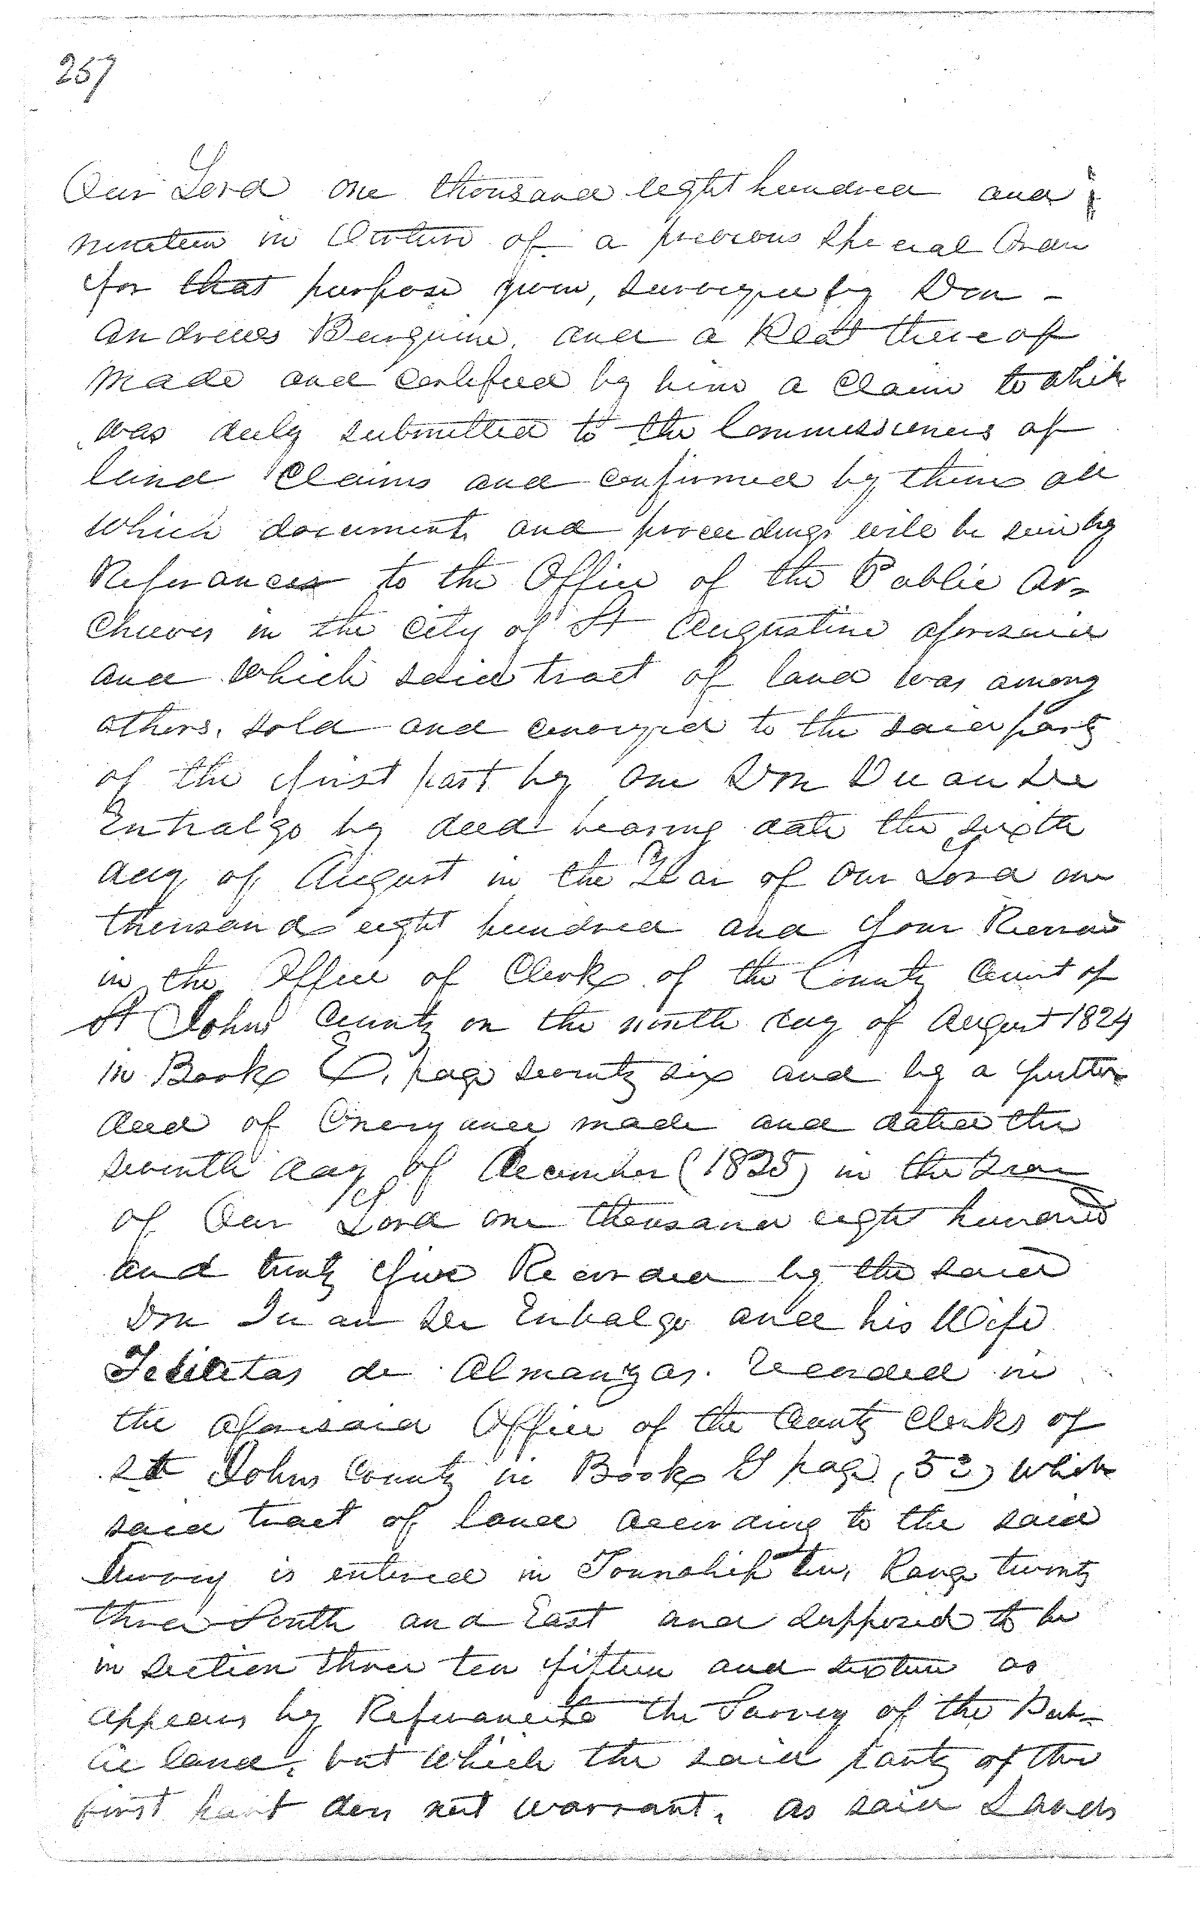 257
Our Lord one thousand eight hundred and
nineteen in virtue of a previous special Order
for that purpose given, surveyed by Don -
Andrews Burguine. and a Plat thereof
Made and certified by him a Claim to which
was duly submitted to the Commissioners of
land Claims and confirmed by them all
which documents and proceedings will be seen by
Referances to the Office of the Public Ar-
cheives in the city of St Augustine aforesaid
and which said tract of land was among
others, sold and conveyed to the said party
of the first part by one Don Duan De
Entralgo by deed bearing date the sixth
day of August in the Year of Our Lord one
thousand eight hundred and four Record
in the Office of Clerk of the County Court of
St Johns County on the ninth day of August 1824
in Book E, page seventy six and by a further
deed of Conveyance made and dated the
seventh day of December (1825) in the Year
of Our Lord one thousand eight hundred
and twenty five Recorded by the said
Don Juan De Entralgo and his Wife
de Almanzas. Recorded in
the aforesaid Office of the County Clerks of
St Johns County in Book G page (53) which
said tract of land according to the said
Survey is entered in Township ten, Range twenty
three South and East and supposed to be
in section three ten fifteen and sixteen as
appears by Referance to the Survey of the Pub-
lic land, but which the said party of the
first part does not warrant, as said Lands